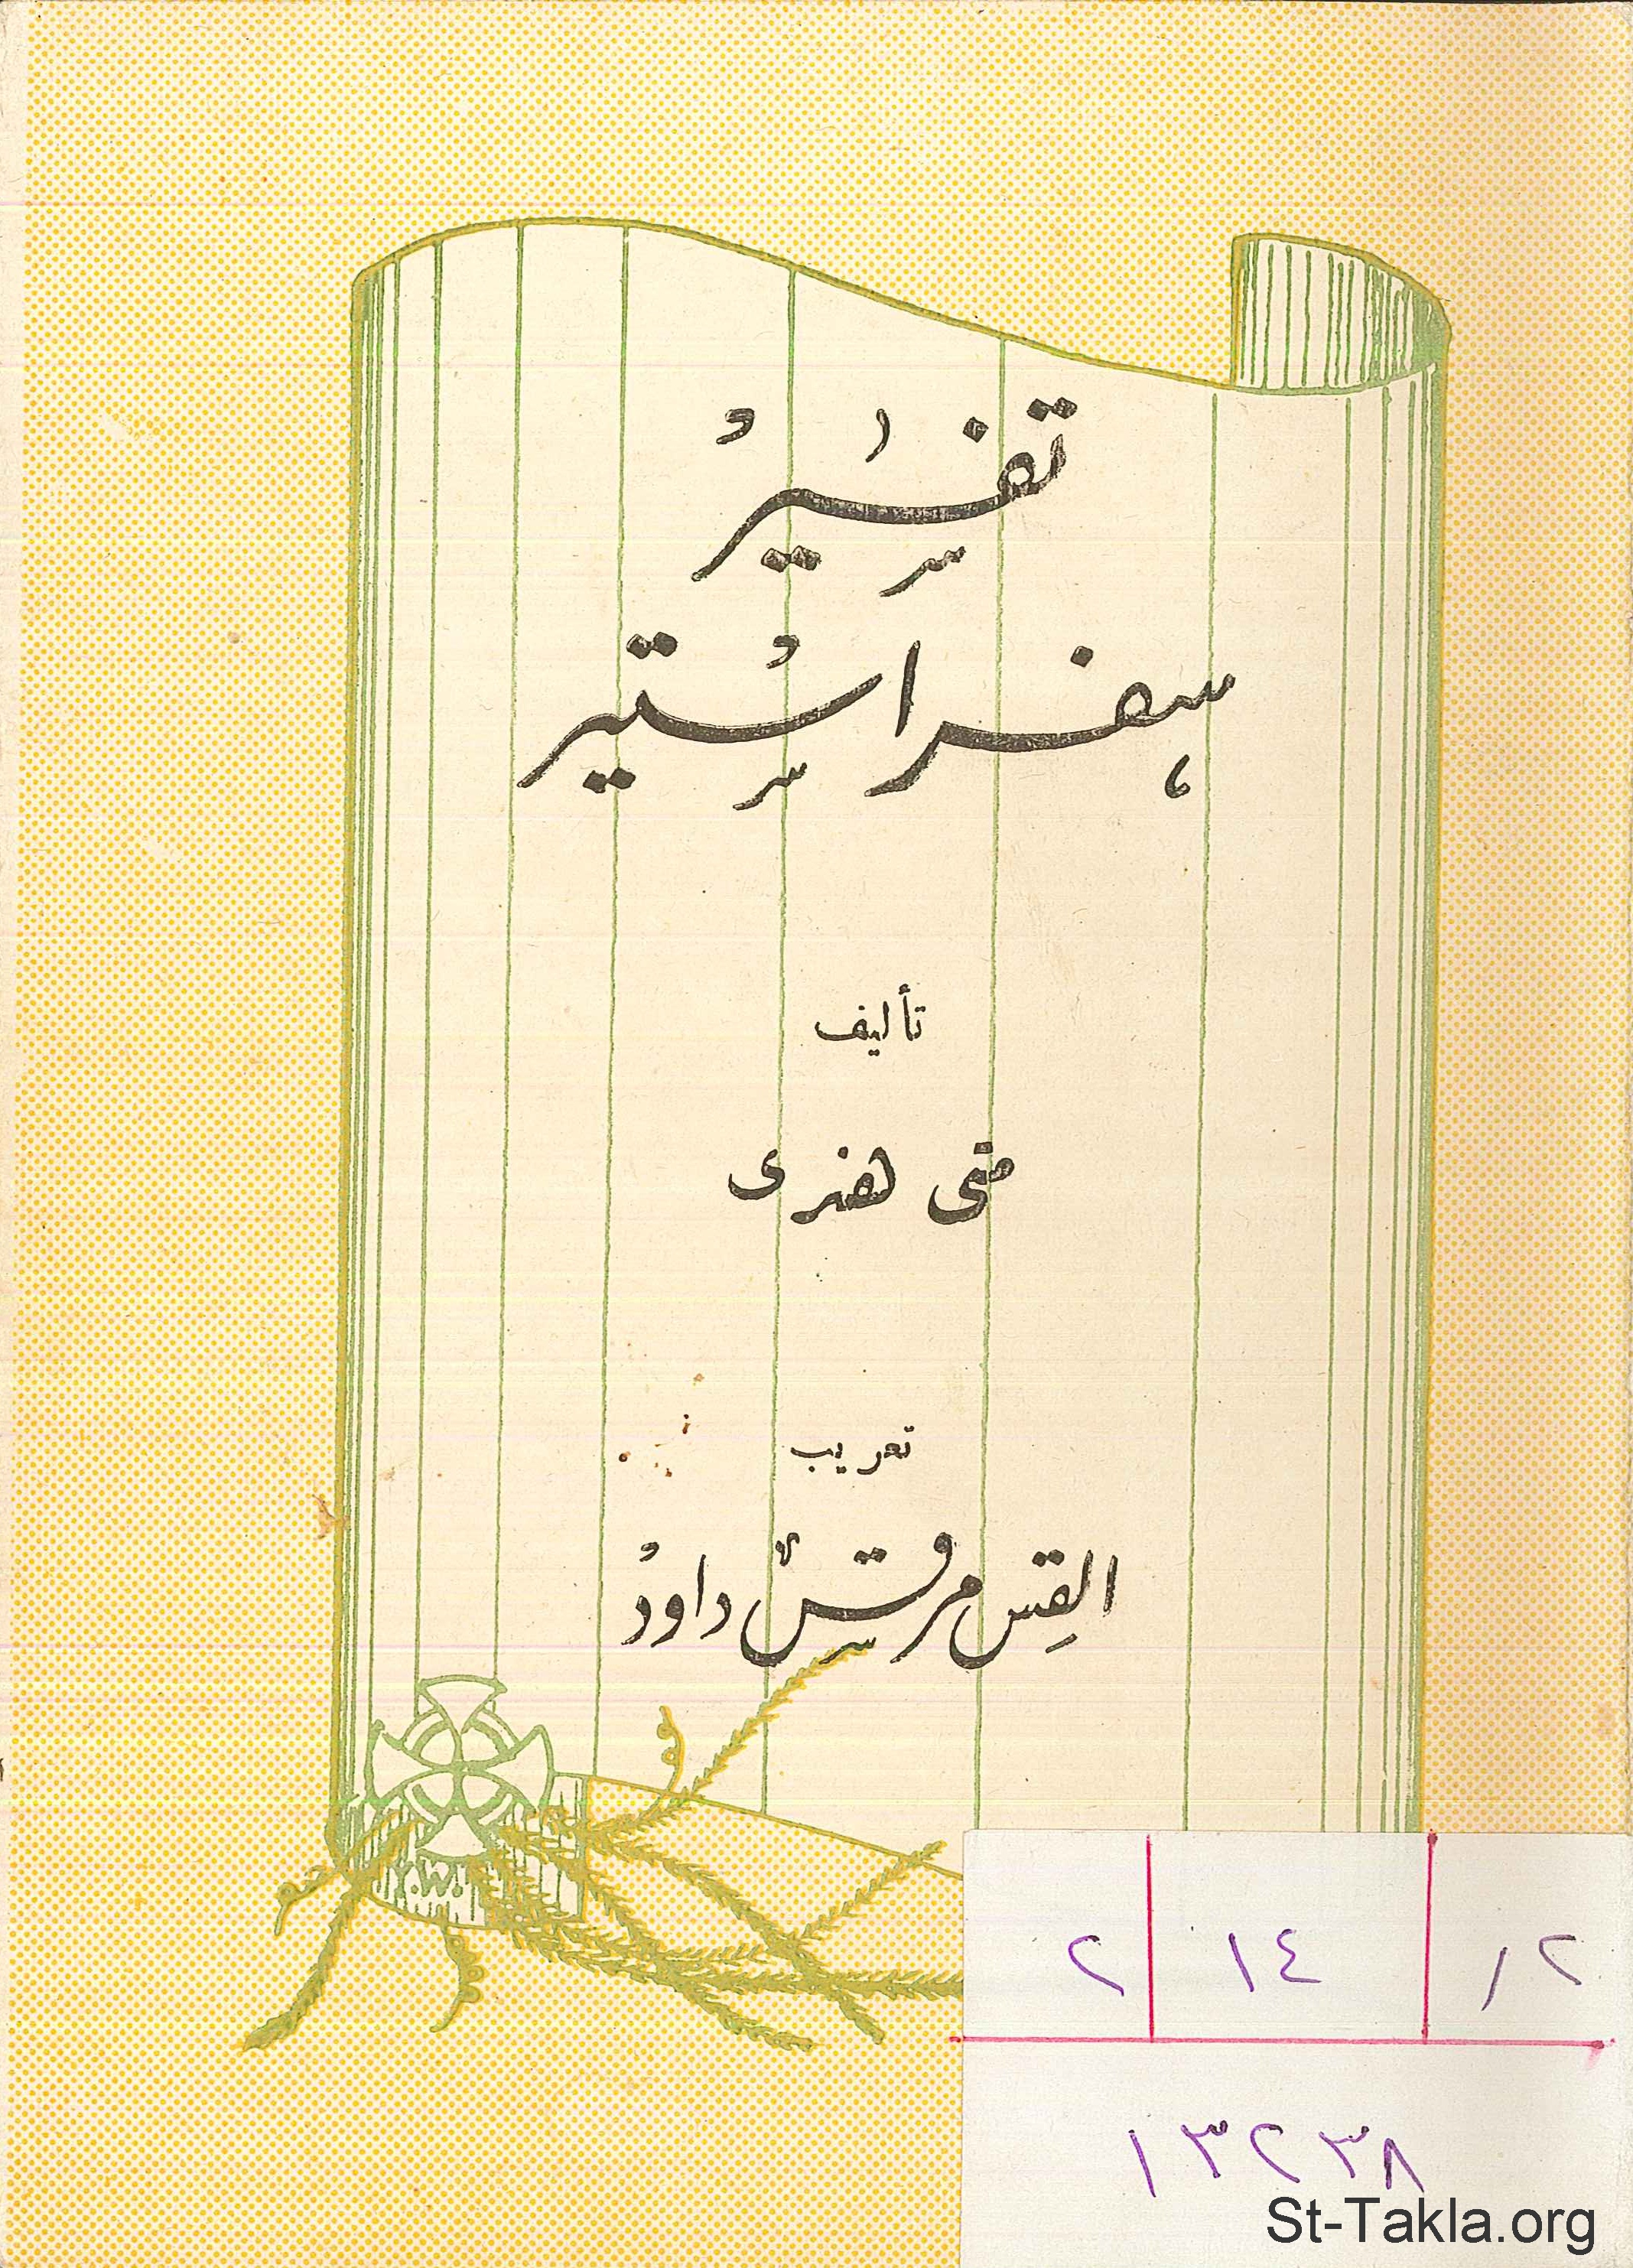 تفسير
سفر استير
تأليف
متى هنرى
تعريب
القس مرقس داود
Y.W.
٢ ١٤ ٢ر
١٣٢٣٨
St-Takla.org